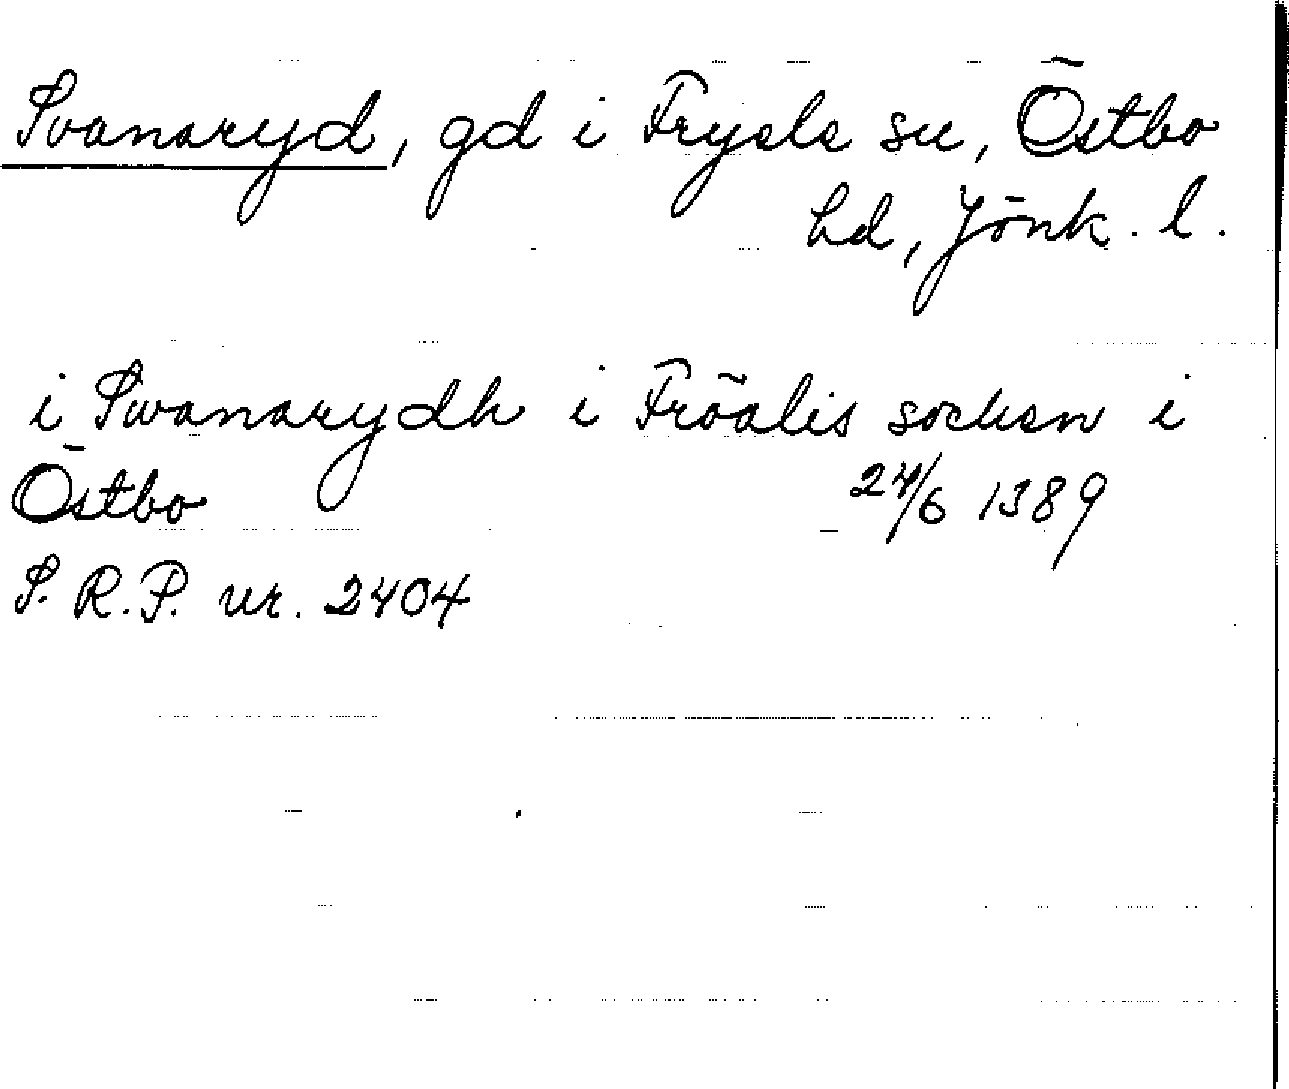 Svanaryd, gd i Fryele sn, Östbo
hd, Jönk. l.
i Swanarydh i Fröalis socken i
Östbo 24/6 1389
S. R. P. nr. 2404